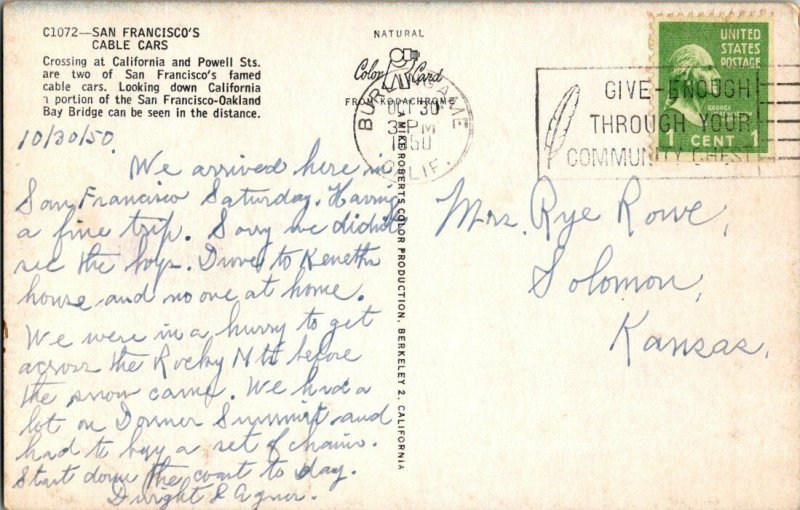 C1072—SAN FRANCISCO'S
CABLE CARS
Crossing at California and Powell Sts.
are two of San Francisco's famed
cable cars. Looking down California
a portion of the San Francisco-Oakland
Bay Bridge can be seen in the distance.
NATURAL
Color Card
FROM KODACHROME
BURLINGAME
OCT 30
3 PM
1950
CALIF.
GIVE-ENOUGH
THROUGH YOUR
COMMUNITY CHEST
UNITED
STATES
POSTAGE
GEORGE
1 CENT 1
10/30/50.
We arrived here in
San Francisco Saturday. Having
a fine trip. Sorry we didn't
see the boys. Drove to Keneths
house and no one at home.
We were in a hurry to get
across the Rocky Mtt before
the snow came. We had a
lot on Donner Summit and
had to buy a set of chains.
Start down the coast to day.
Dwight & Agnes.
A MIKE ROBERTS COLOR PRODUCTION, BERKELEY 2, CALIFORNIA
Mrs. Rye Rowe,
Solomon,
Kansas.